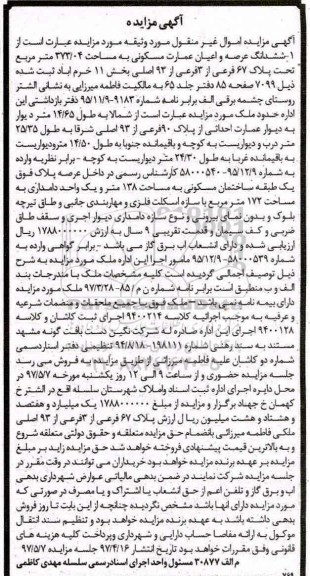 آگهی مزایده
آگهی مزایده اموال غیر منقول مورد وثیقه مورد مزایده عبارت است از
۱-ششدانگ عرصه و اعیان عمارت مسکونی به مساحت ۲۷۳/۰۴ متر مربع
تحت پلاک ۶۷ فرعی از ۳فرعی از ۹۳ اصلی بخش ۱۱ خرم آباد ثبت شده
ذیل ۷۰۹۹ صفحه ۸۵ دفتر جلد ۶۵ به مالکیت فاطمه میرزایی به نشانی الشتر
روستای چشمه برقی الف برابر نامه شماره ۹۱۸۳-۹۵/۱۱/۹ دفتر بازداشتی این
اداره حدود ملک مورد مزایده عبارت است از شمالا به طول ۱۴/۶۵ متر دیوار
به دیوار عمارت احداثی از پلاک ۹۰فرعی از ۹۳ اصلی شرقا به طول ۲۵/۳۵
متر درب و دیواریست به کوچه و باقیمانده جنوبا به طول ۱۴/۵۰ متردیواریست
به باقیمانده غربا به طول ۲۴/۳۰ متر دیواریست به کوچه - برابر نظریه وارده
به شماره ۵۸۰۰۰۵۴۰-۹۵/۱۲/۹ کارشناس رسمی در داخل عرصه پلاک فوق
یک طبقه ساختمان مسکونی به مساحت ۱۳۸ متر و یک واحد دامداری به
مساحت ۱۷۲ متر مربع با سازه اسکلت فلزی و مهاربندی جانبی و طاق تیرچه
بلوک و بدون نمای بیرونی و نوع سازه دامداری دیوار آجری و سقف طاق
ضربی و کف بتنی و با قدمت تقریبی ۹ سال به ارزش ۱۷۸۸۰۰۰۰۰۰ ریال
ارزیابی شده و دارای انشعاب آب برق گاز می باشد - برابر گواهی وارده به
شماره ۵۸۰۰۰۵۳۹-۹۵/۱۲/۹ مامور اجرا این اداره ملک مورد مزایده به شرح
ذیل توصیف اجمالی گردیده است کلیه مشخصات ملک با مندرجات بند
الف و ب منطبق است برابر نامه شماره ن م /۸۵-۹۷/۳/۲۸ ملک مورد مزایده
دارای بیمه نامه می باشد - ملک فوق با جمیع ملحقات و منضمات شرعیه
و عرفیه به موجب اجرائیه کلاسه ۹۴۰۰۲۱۴ اجرای ثبت کاشان و کلاسه
۹۴۰۰۱۲۸ اجرای این اداره صادره له شرکت نگین صنعت بافت گونه مشهد
مستند به سند رهنی شماره ۱۹۸۱۱۱-۹۴/۸/۱۸ تنظیمی دفتر اسنادرسمی
شماره دو کاشان علیه فاطمه میرزائی از طریق مزایده به فروش می رسد
جلسه مزایده حضوری و از ساعت ۹ الی ۱۲ روز یکشنبه مورخه ۹۷/۵/۷ در
محل دایره اجرای اداره ثبت اسناد واملاک شهرستان سلسله اقع در الشتر خ
کهمان خ جهاد برگزار و مزایده از مبلغ ۱۷۸۸۰۰۰۰۰۰ یک میلیارد و هفتصد
و هشتاد و هشت میلیون ریال ارزش پلاک ۶۷ فرعی از ۳فرعی از ۹۳ اصلی
ملکی فاطمه میرزائی بانضمام حق مزایده متعلقه و حقوق دولتی متعلقه شروع
و به بالاترین قیمت پیشنهادی فروخته خواهد شد حق مزایده زاید بر مبلغ
مزایده بر عهده برنده مزایده خواهد بود خریداران می توانند در وقت مقرر در
جلسه مزایده شرکت نمایند در ضمن بدهی مالیاتی عوارض شهرداری بدهی
آب و برق گاز و تلفن اعم از حق انشعاب یا اشتراک و یا مصرف در صورتی که
مورد مزایده دارای آنها باشد مشخص نگردیده چنانچه از این بابت تا روز فروش
بدهی داشته باشد به عهده برنده مزایده خواهد بود و تنظیم سند انتقال
موکول به ارائه مفاصا حساب دارایی و شهرداری وپرداخت کلیه هزینه های
قانونی وفق مقررات خواهد بود تاریخ انتشار ۹۷/۴/۱۶ جلسه مزایده ۹۷/۵/۷
م الف ۳۰۸۷۷ مسئول واحد اجرای اسنادرسمی سلسله مهدی کاظمی